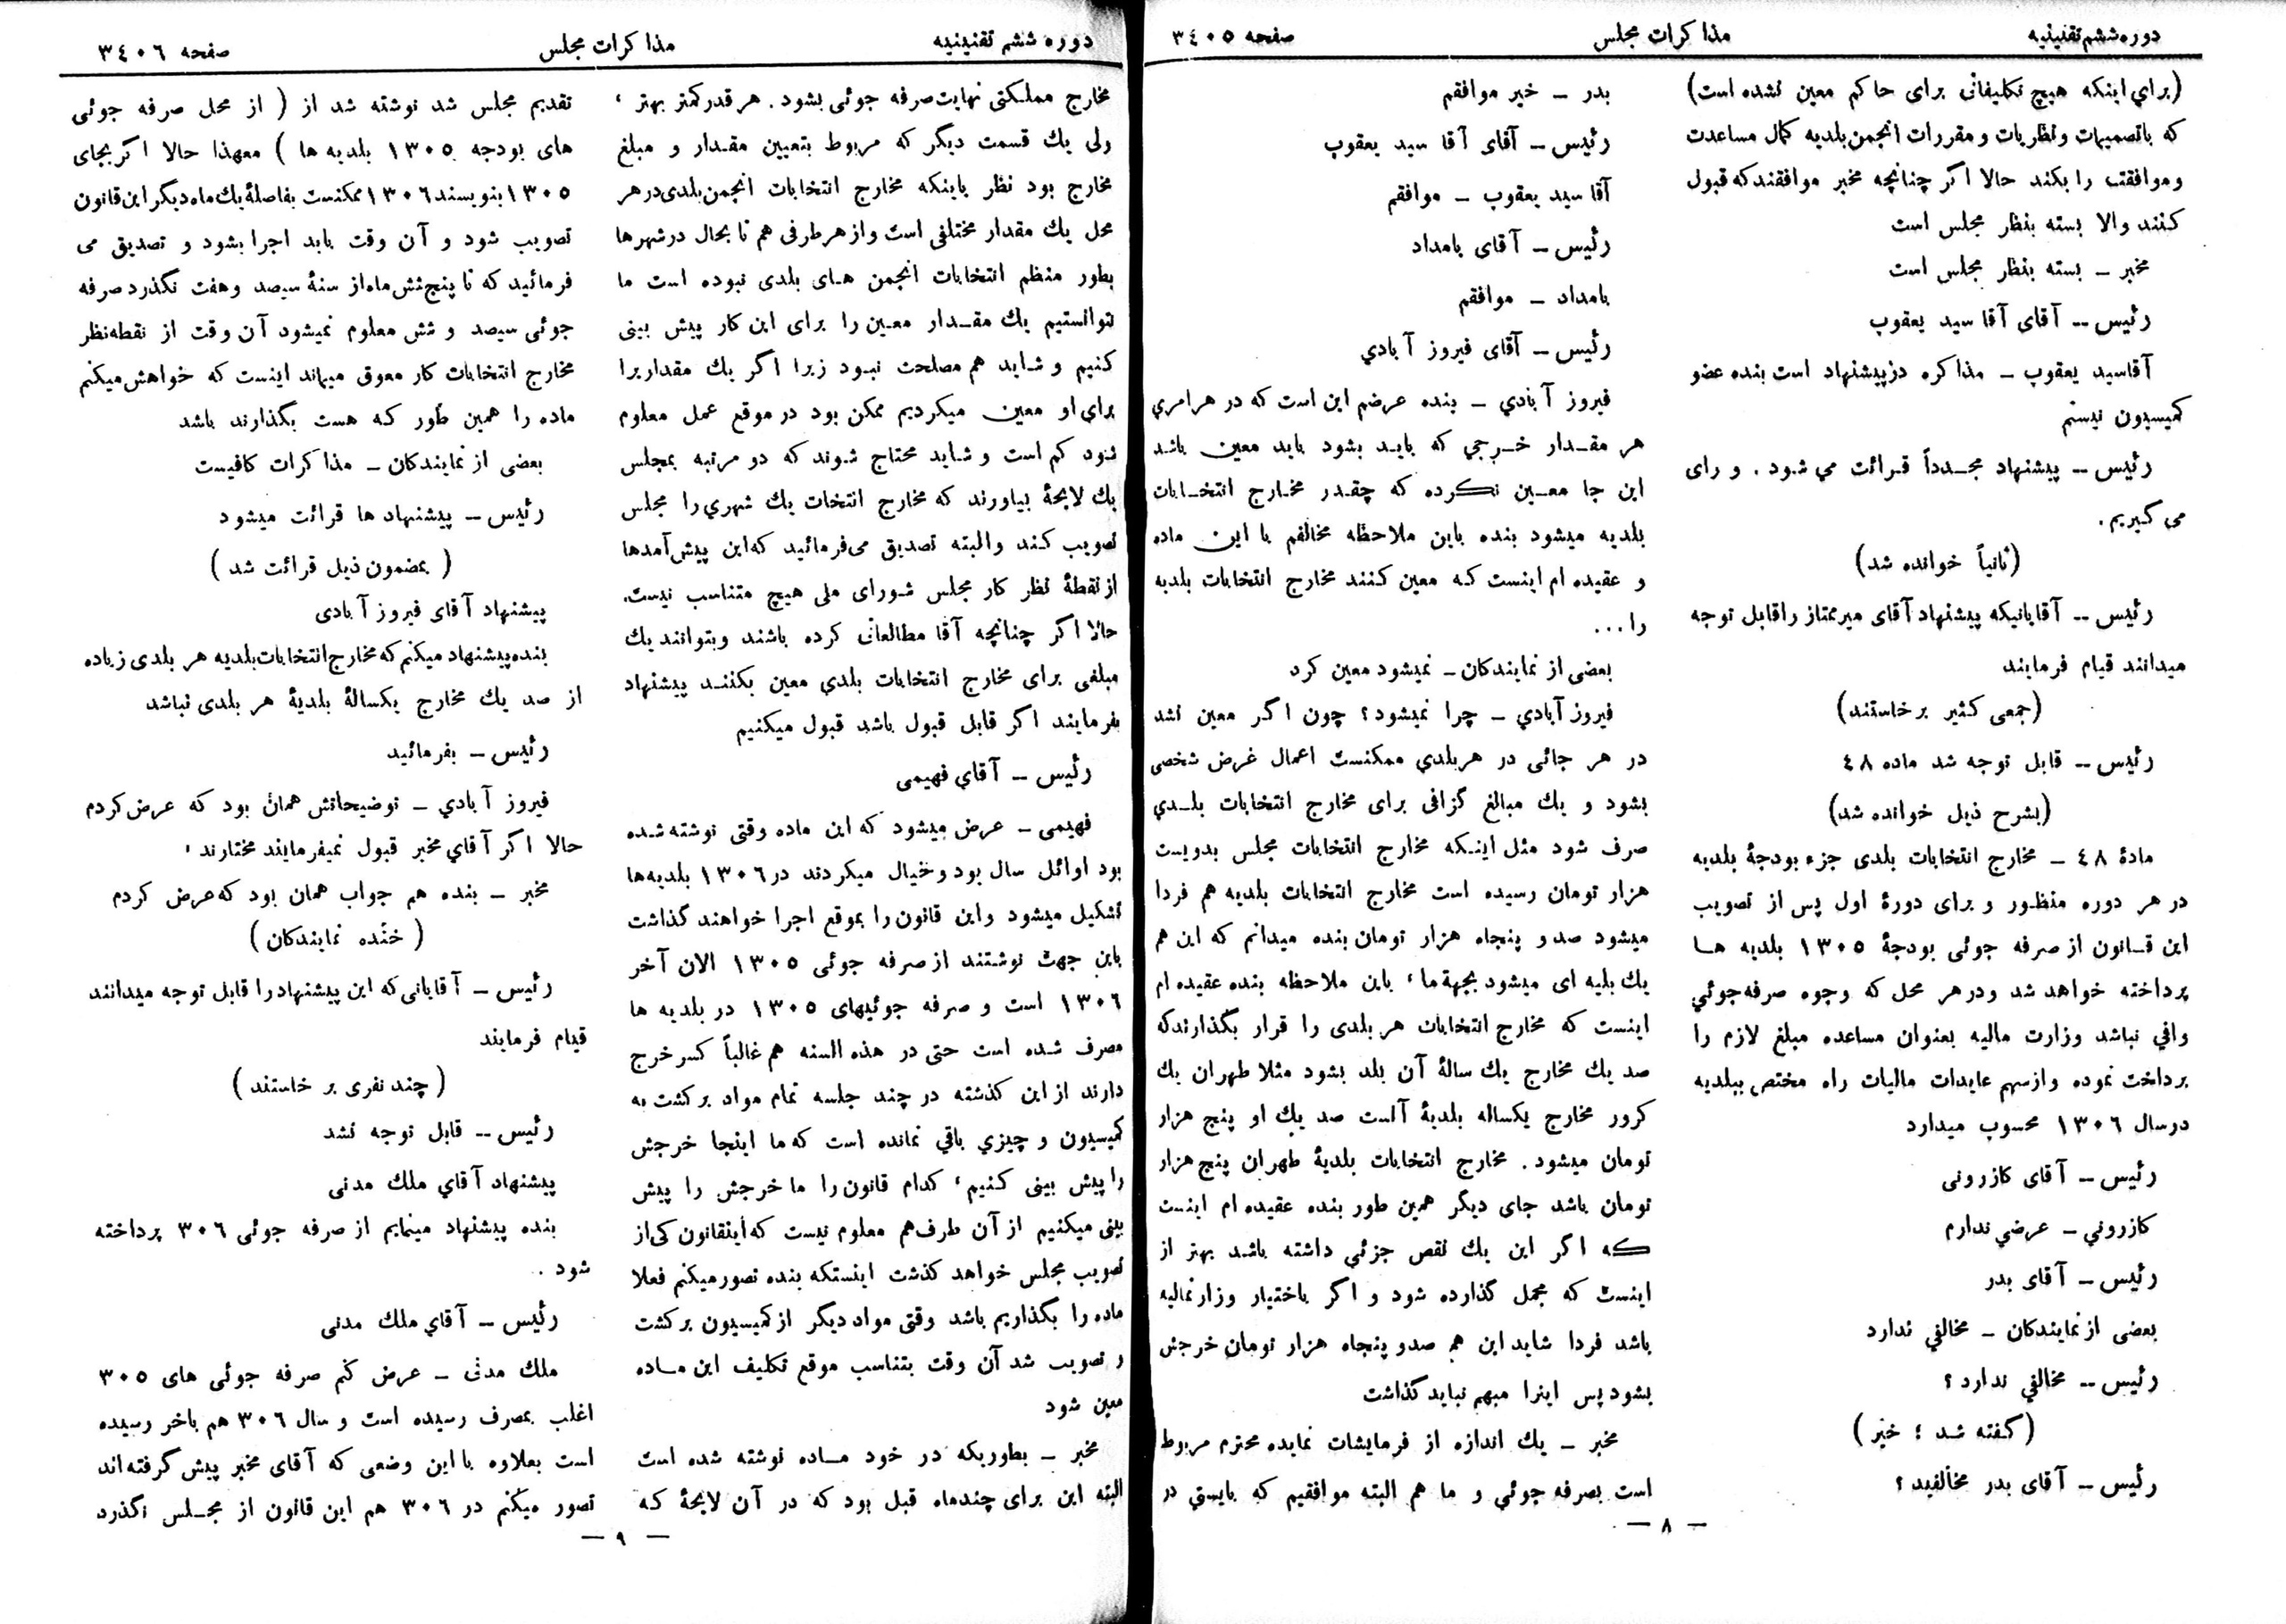 دوره ششم تقنینیه
مذاکرات مجلس
صفحه ۳٤۰۵
(برای اینکه هیچ تکلیفاتی برای حاکم معین نشده است)
که باتصمیمات ونظریات و مقررات انجمن بلدیه کمال مساعدت
وموافقت را بکند حالا اگر چنانچه مخبر موافقند که قبول
کنند والا بسته بنظر مجلس است
مخبر ــ بسته بنظر مجلس است
رئیس ــ آقای آقا سید یعقوب
آقاسید یعقوب ــ مذاکره درپیشنهاد است بنده عضو
کمیسیون نیستم
رئیس ــ پیشنهاد مجدداً قرائت می شود . و رای
می گیریم .
(ثانیاً خوانده شد)
رئیس ــ آقایانیکه پیشنهاد آقای میرممتاز راقابل توجه
میدانند قیام فرمایند
(جمعی کثیر برخاستند)
رئیس ــ قابل توجه شد ماده ٤۸
(بشرح ذیل خوانده شد)
مادۀ ٤۸ ــ مخارج انتخابات بلدی جزء بودجۀ بلدیه
در هر دوره منظور و برای دورۀ اول پس از تصویب
این قانون از صرفه جوئی بودجۀ ۱۳۰۵ بلدیه ها
پرداخته خواهد شد ودرهر محل که وجوه صرفه جوئي
وافي نباشد وزارت مالیه بعنوان مساعده مبلغ لازم را
پرداخت نموده وازسهم عایدات مالیات راه مختص ببلدیه
درسال ۱۳۰٦ محسوب میدارد
رئیس ــ آقای کازرونی
کازروني ــ عرضي ندارم
رئیس ــ آقای بدر
بعضی از نمایندکان ــ مخالفي ندارد
رئیس ــ مخالفي ندارد ؟
(گفته شد ؛ خیر)
رئیس ــ آقای بدر مخالفید ؟
بدر ــ خیر موافقم
رئیس ــ آقای آقا سید یعقوب
آقا سید یعقوب ــ موافقم
رئیس ــ آقای بامداد
بامداد ــ موافقم
رئیس ــ آقای فیروز آبادي
فیروز آبادي ــ بنده عرضم این است که در هر امري
هر مقدار خرجي که باید بشود باید معین باشد
این جا معین نکرده که چقدر مخارج انتخابات
بلدیه میشود بنده باین ملاحظه مخالفم با این ماده
و عقیده ام اینست که معین کنند مخارج انتخابات بلدیه
را...
بعضی از نمایندکان ــ نمیشود معین کرد
فیروز آبادي ــ چرا نمیشود؟ چون اگر معین نشد
در هر جائی در هربلدي ممکنست اعمال غرض شخصی
بشود و یك مبالغ گزافی برای مخارج انتخابات بلدي
صرف شود مثل اینکه مخارج انتخابات مجلس بدویست
هزار تومان رسیده است مخارج انتخابات بلدیه هم فردا
میشود صدو پنجاه هزار تومان بنده میدانم که این هم
یك بلیه ای میشود بجهة ما، باین ملاحظه بنده عقیده ام
اینست که مخارج انتخابات هر بلدی را قرار بگذارندکه
صد یك مخارج یك سالۀ آن بلد بشود مثلا طهران یك
کرور مخارج یکساله بلدیۀ آنست صد یك او پنج هزار
تومان میشود . مخارج انتخابات بلدیۀ طهران پنج هزار
تومان باشد جای دیگر همین طور بنده عقیده ام اینست
که اگر این یك نقص جزئي داشته باشد بهتر از
اینست که مجمل گذارده شود و اگر باختیار وزارتمالیه
باشد فردا شاید این هم صدو پنجاه هزار تومان خرجش
بشود پس اینرا مبهم نباید گذاشت
مخبر ــ یك اندازه از فرمایشات نماینده محترم مربوط
است بصرفه جوئي و ما هم البته موافقیم که بایستي در
ــ ۸ ــ
دوره ششم تقنینیه
مذاکرات مجلس
صفحه ۳٤۰٦
مخارج مملکتی نهایت صرفه جوئی بشود . هر قدر کمتر بهتر ،
ولی یك قسمت دیگر که مربوط بتعیین مقدار و مبلغ
مخارج بود نظر باینکه مخارج انتخابات انجمن بلدی در هر
محل یك مقدار مختلفی است و از هر طرفی هم تا بحال در شهرها
بطور منظم انتخابات انجمن های بلدی نبوده است ما
نتوانستیم یك مقدار معین را برای این کار پیش بینی
کنیم و شاید هم مصلحت نبود زیرا اگر یك مقداریرا
برای او معین میکردیم ممکن بود در موقع عمل معلوم
شود کم است و شاید محتاج شوند که دو مرتبه بمجلس
یك لایحۀ بیاورند که مخارج انتخات یك شهري را مجلس
تصویب کند والبته تصدیق می فرمائید که این پیش آمدها
از نقطۀ نظر کار مجلس شورای ملی هیچ متناسب نیست.
حالا اگر چنانچه آقا مطالعاتی کرده باشند وبتوانند یك
مبلغی برای مخارج انتخابات بلدي معین بکنند پیشنهاد
بفرمایند اگر قابل قبول باشد قبول میکنیم
رئیس ــ آقاي فهیمی
فهیمی ــ عرض میشود که این ماده وقتی نوشته شده
بود اوائل سال بود و خیال میکردند در ۱۳۰٦ بلدیه ها
تشکیل میشود واین قانون را بموقع اجرا خواهند گذاشت
باین جهت نوشتند از صرفه جوئی ۱۳۰۵ الان آخر
۱۳۰٦ است و صرفه جوئیهای ۱۳۰۵ در بلدیه ها
مصرف شده است حتی در هذه السنه هم غالباً کسر خرج
دارند از این گذشته در چند جلسه تمام مواد برگشت به
کمیسیون و چیزي باقي نمانده است که ما اینجا خرجش
را پیش بینی کنیم، کدام قانون را ما خرجش را پیش
بینی میکنیم از آن طرف هم معلوم نیست که اینقانون کی از
تصویب مجلس خواهد گذشت اینستکه بنده تصورمیکنم فعلا
ماده را بگذاریم باشد وقتی مواد دیگر از کمیسیون برگشت
و تصویب شد آن وقت بتناسب موقع تکلیف این ماده
معین شود
مخبر ــ بطوریکه در خود ماده نوشته شده است
البته این برای چندماه قبل بود که در آن لایحۀ که
تقدیم مجلس شد نوشته شد از ( از محل صرفه جوئی
های بودجه ۱۳۰۵ بلدیه ها ) معهذا حالا اگر بجای
۱۳۰۵ بنویسند ۱۳۰٦ ممکنست بفاصلۀ یك ماه دیگر این قانون
تصویب شود و آن وقت باید اجرا بشود و تصدیق می
فرمائید که تا پنج شش ماه از سنۀ سیصد وهفت نگذرد صرفه
جوئی سیصد و شش معلوم نمیشود آن وقت از نقطه نظر
مخارج انتخابات کار معوق میماند اینست که خواهش میکنم
ماده را همین طور که هست بگذارند باشد
بعضی از نمایندکان ــ مذاکرات کافیست
رئیس ــ پیشنهاد ها قرائت میشود
( بمضمون ذیل قرائت شد )
پیشنهاد آقای فیروز آبادی
بنده پیشنهاد میکنم که مخارج انتخابات بلدیه هر بلدی زیاده
از صد یك مخارج یکسالۀ بلدیۀ هر بلدی نباشد
رئیس ــ بفرمائید
فیروز آبادي ــ توضیحاتش همان بود که عرض کردم
حالا اگر آقاي مخبر قبول نمیفرمایند مختارند ،
مخبر ــ بنده هم جواب همان بود که عرض کردم
( خنده نمایندکان )
رئیس ــ آقایانی که این پیشنهاد را قابل توجه میدانند
قیام فرمایند
( چند نفری بر خاستند )
رئیس ــ قابل توجه نشد
پیشنهاد آقاي ملك مدنی
بنده پیشنهاد مینمایم از صرفه جوئی ۳۰٦ پرداخته
شود .
رئیس ــ آقاي ملك مدنی
ملك مدنی ــ عرض کنم صرفه جوئی های ۳۰۵
اغلب بمصرف رسیده است و سال ۳۰٦ هم باخر رسیده
است بعلاوه با این وضعی که آقای مخبر پیش گرفته اند
تصور میکنم در ۳۰٦ هم این قانون از مجلس نگذرد
ــ ۹ ــ